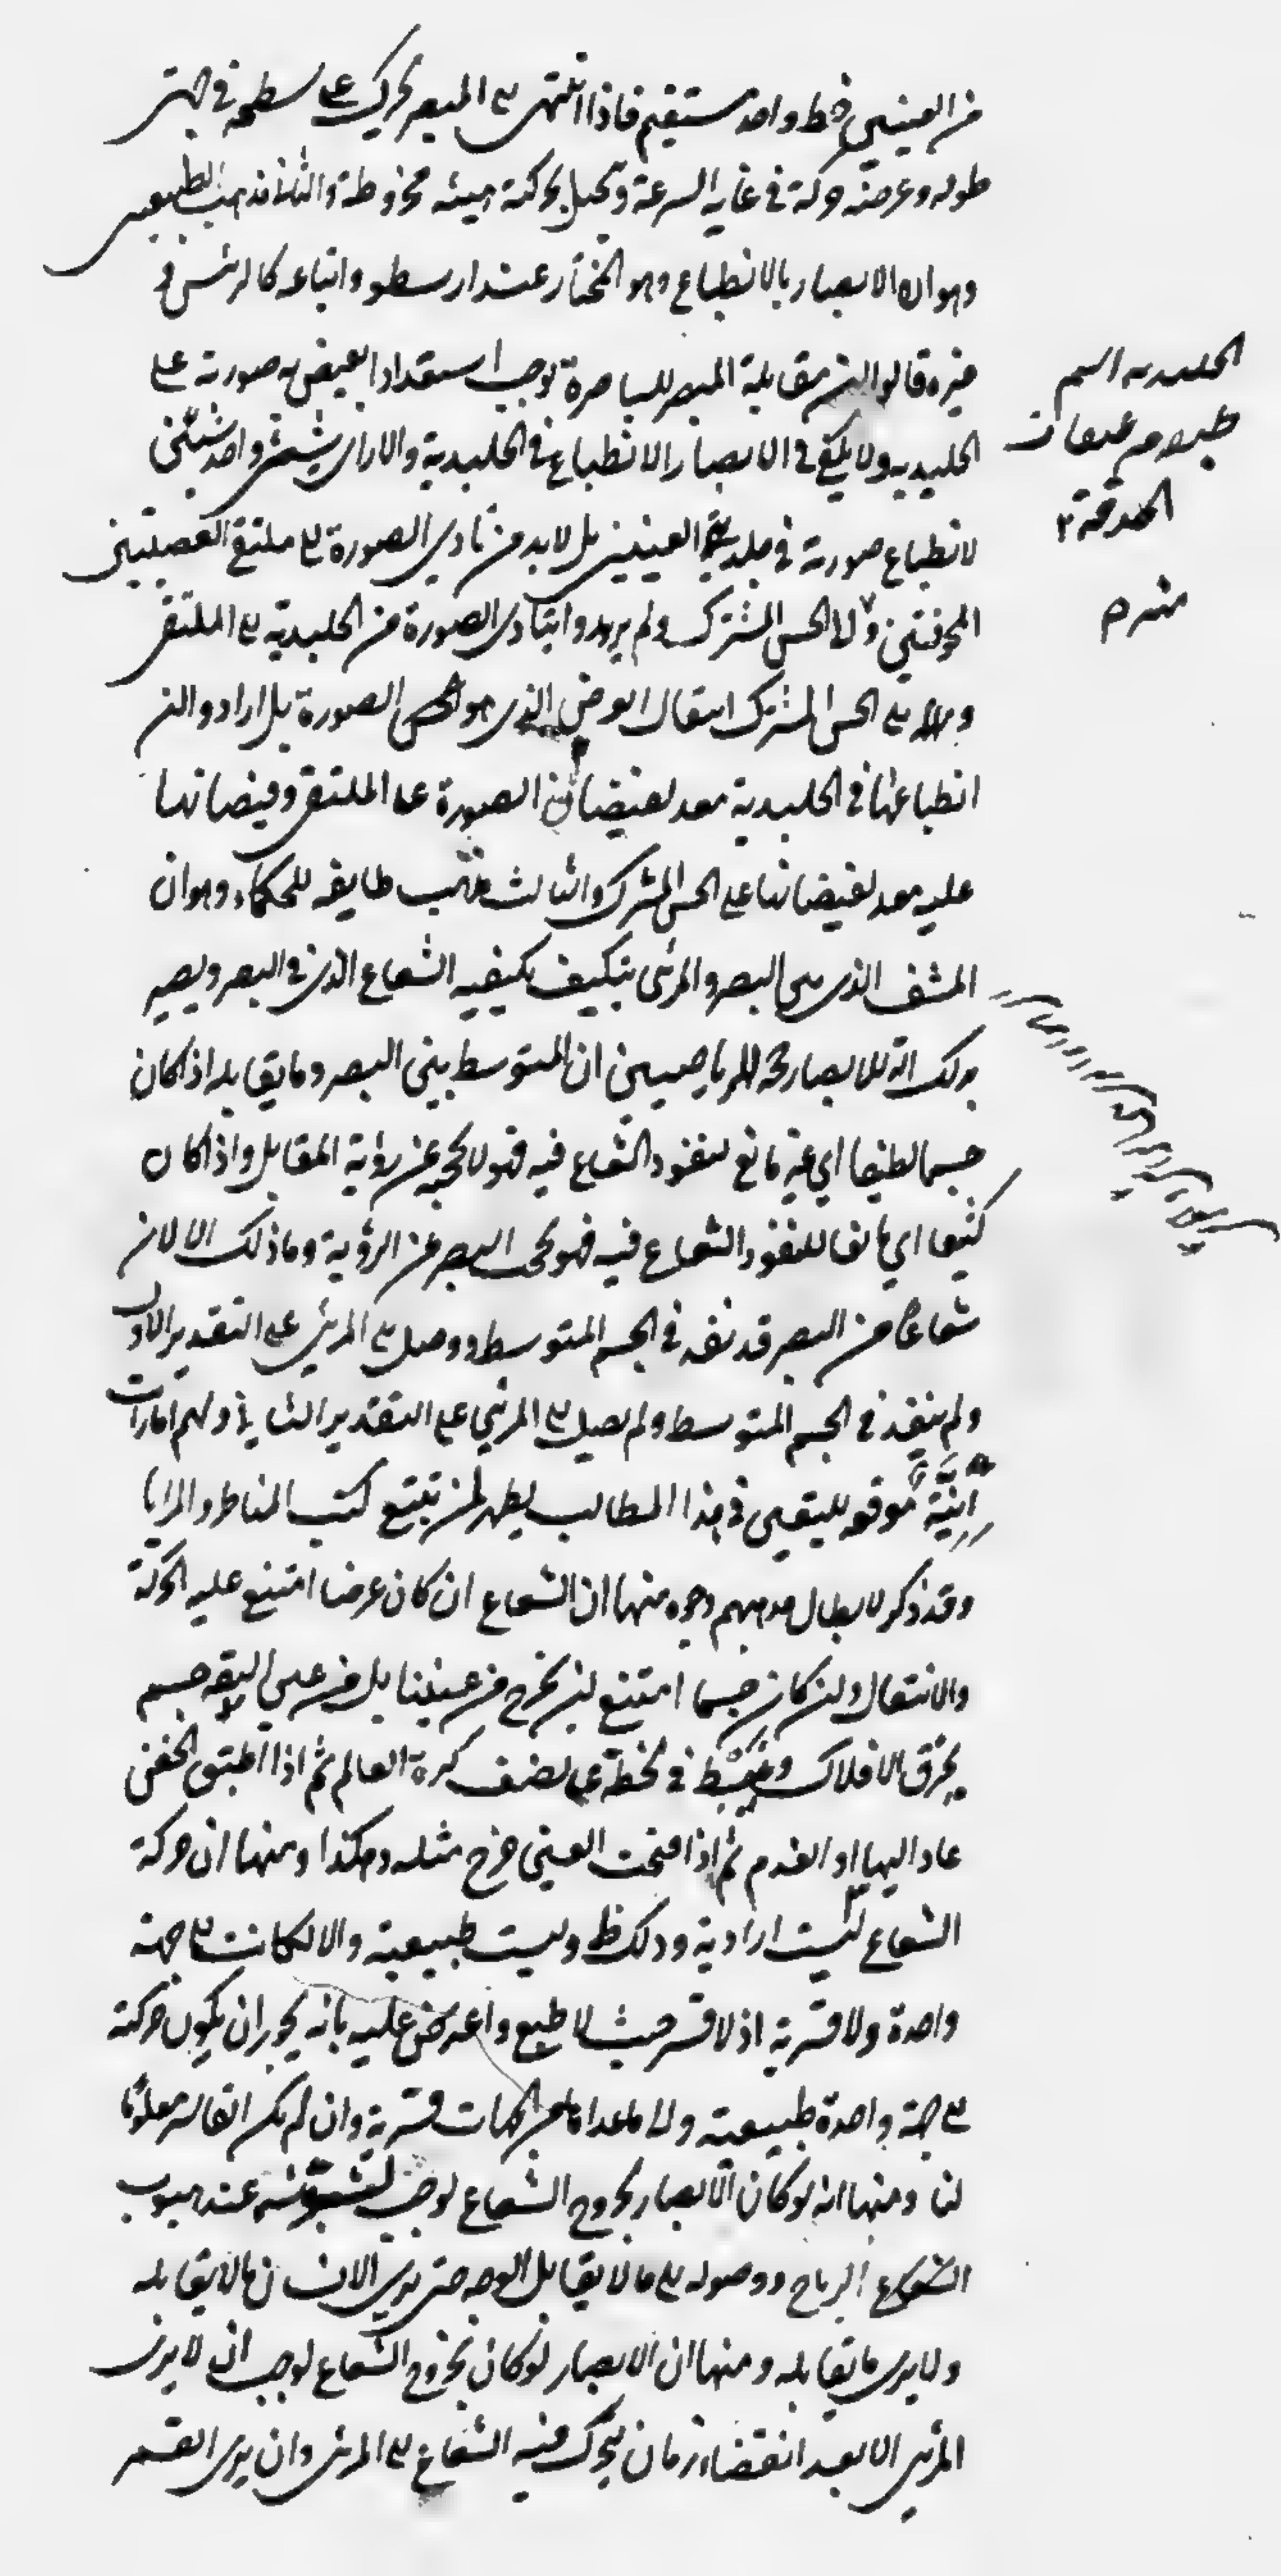 من العينين خط واحد مستقيم فاذا انتهى الى المبصر تحرك على سطحه في جهتى
طوله وعرضه حركة في غاية السرعة وتخيل بحركته هيئة مخروطة والثانى مذهب الطبيعيين
وهو ان الابصار بالانطباع وهو المختار عند ارسطو واتباعه كالرئيس و
غيره قالوا ان مقابلة المبصر للباصرة توجب استعدادا يفيض به صورته على
الجليدية ولا يكفى في الابصار الانطباع في الجليدية والا لرأى شيئ واحد شيئين
لانطباع صورته في جليديتى العينين بل لا بد من تادى الصورة الى ملتقى العصبتين
المجوفتين والى الحس المشترك ولم يريدوا بتادى الصورة من الجليدية الى الملتقى
ومنه الى الحس المشترك انتقال العرض الذى هو الصورة بل ارادوا ان
انطباعها في الجليدية معد لفيضان الصورة على الملتقى وفيضانها
عليه معد لفيضانها على الحس المشترك والثالث مذهب طايفه للحكماء وهو ان
المشف الذى بين البصر والمرئى يتكيف بكيفيه الشعاع الذى في البصر ويصير
بذلك الة للابصار حجة الرياضيين ان المتوسط بين البصر وما يقابله اذا كان
جسما لطيفا اي غير مانع لنفوذ الشعاع فيه فهو لا يحجبه عن رؤية المقابل واذا كان
كثيفا اي مانعا للنفوذ الشعاع فيه فهو يحجب البصر عن الرؤية وما ذلك الا لان
شعاعا من البصر قد نفذ في الجسم المتوسط ووصل الى المرئي على التقدير الاول
ولم ينفذ في الجسم المتوسط ولم يصل الى المرئي على التقدير الثاني ولهم امارات
إنّيّة موقعه لليقين في هذا المطالب يظهر لمن تتبع كتب المناظر والمرايا
وقد ذكر لابطال مذهبهم وجوه منها ان الشعاع ان كان عرضا امتنع عليه الحركة
والانتقال وان كان جسما امتنع ان يخرج من عيننا بل من عين البقه جسم
يخرق الافلاك وينبسط في لحظة على نصف كرة العالم ثم اذا اطبق الجفن
عاد اليها او انعدم ثم اذا فتحت العين خرج مثله وهكذا ومنها ان حركة
الشعاع ليست ارادية وذلك ظ وليست طبيعية والا لكانت الى جهة
واحدة ولا قسرية اذ لا قسر حيث لا طبع واعترض عليه بانه يجوز ان يكون حركته
الى جهة واحدة طبيعية والى ما عداها من الجهات قسرية وان لم يكن القاسر معلوما
لنا ومنها انه لو كان الابصار بخروج الشعاع لوجب تشوشه عند هبوب
الرياح ووصوله الى ما لا يقابل الوجه حتى يرى الانسان ما لا يقابله
ولا يرى ما يقابله ومنها ان الابصار لو كان بخروج الشعاع لوجب ان لا يرى
المرئي الا بعد انقضاء زمان يتحرك فيه الشعاع الى المرئي وان يرى القمر
الجليديه اسم
طبقات
الحدقة ٢
منه ره